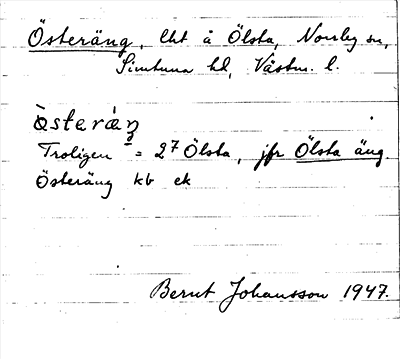 Österäng, lht å Ölsta, Norrby sn,
Simtuna hd, Västm. l.
òsterän̥
Troligen = 2⁷ Ölsta, jfr Ölsta äng.
Österäng kb ek
Bernt Johansson 1947.